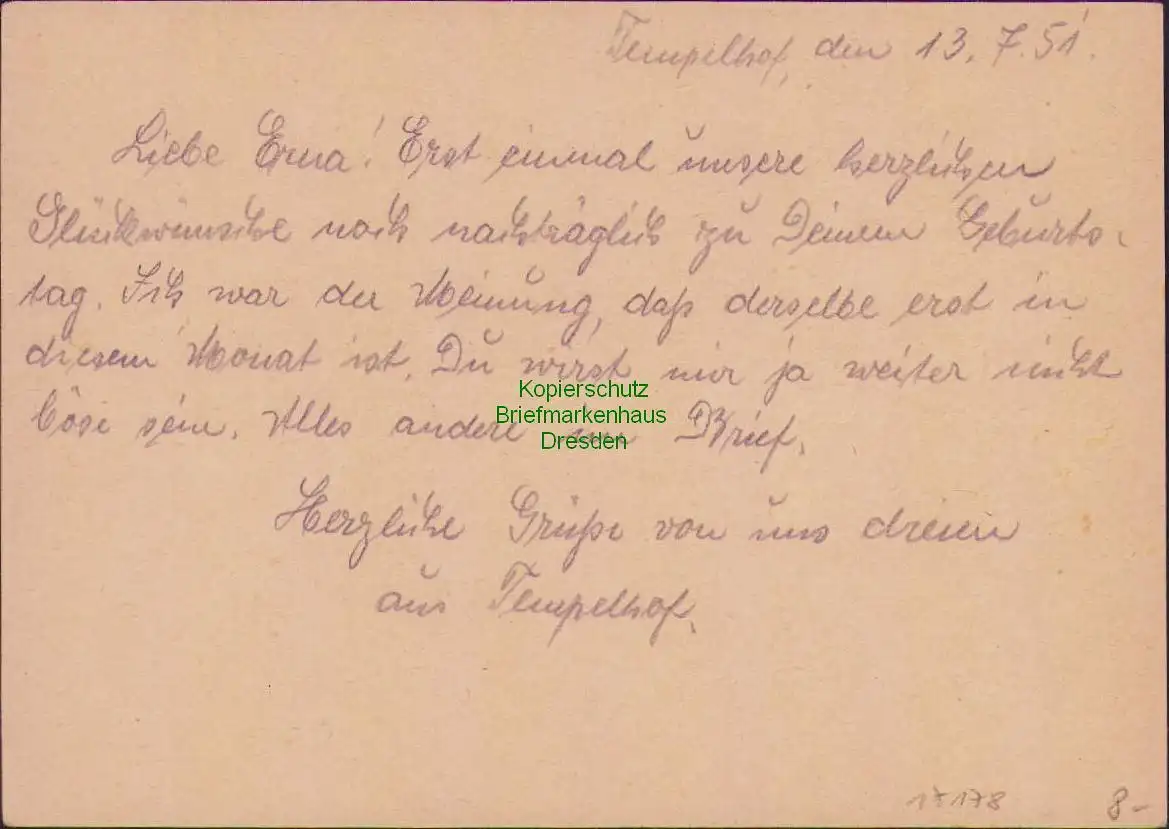 Tempelhof, den 13.7.51.
Liebe Erna! Erst einmal unsere herzlichen
Glückwünsche noch nachträglich zu Deinem Geburts-
tag. Ich war der Meinung, daß derselbe erst in
diesem Monat ist. Du wirst mir ja weiter nicht
böse sein. Alles andere im Brief.
Kopierschutz
Briefmarkenhaus
Dresden
Herzliche Grüße von uns dreien
aus Tempelhof.
17178 8-